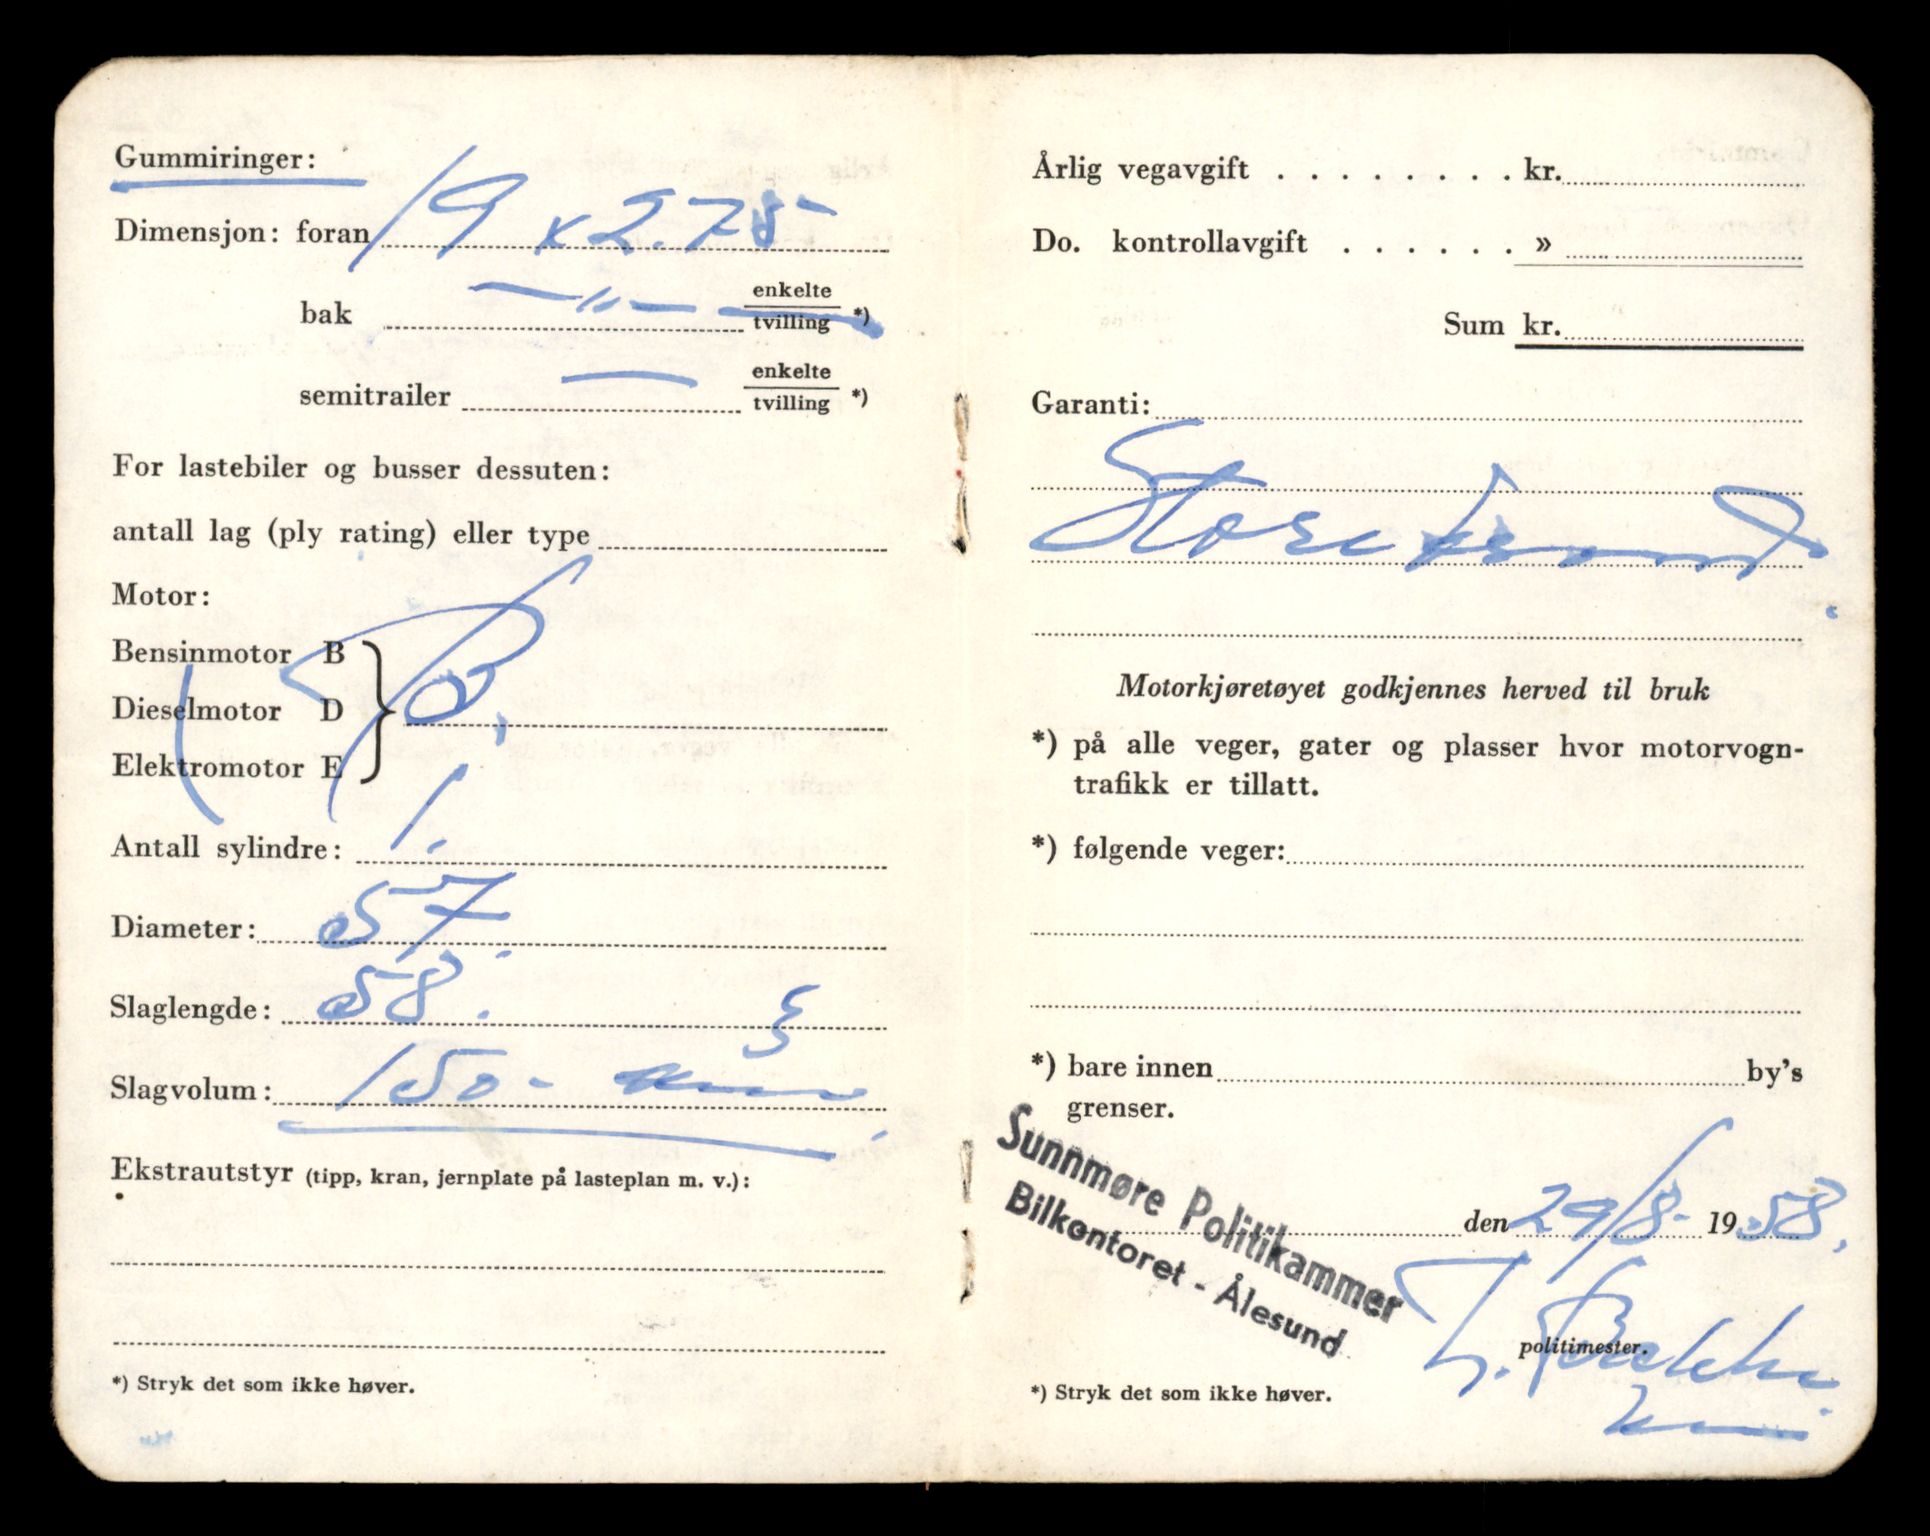 Gummiringer:
Dimensjon: foran 19 x 2.75
bak —"— enkelte
tvilling *)
semitrailer — enkelte
tvilling *)
For lastebiler og busser dessuten:
antall lag (ply rating) eller type
Motor:
Bensinmotor B
Dieselmotor D B.
Elektromotor E
Antall sylindre: 1.
Diameter: 57.
Slaglengde: 58.
3
Slagvolum: 150-
Ekstrautstyr (tipp, kran, jernplate på lasteplan m. v.):
*) Stryk det som ikke høver.
Årlig vegavgift . . . . . . . . kr.
Do. kontrollavgift . . . . . . »
Sum kr.
Garanti:
Storebrand.
Motorkjøretøyet godkjennes herved til bruk
*) på alle veger, gater og plasser hvor motorvogn-
trafikk er tillatt.
*) følgende veger:
*) bare innen by's
grenser.
Sunnmøre Politikammer
Bilkontoret - Ålesund
den 29/8- 1958.
politimester.
*) Stryk det som ikke høver.